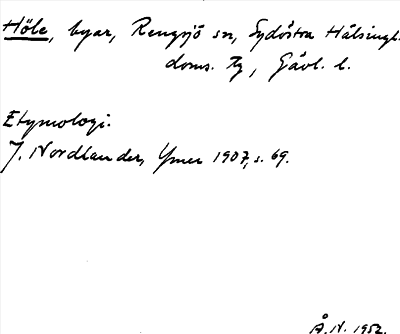 Höle, byar, Rengsjö sn, Sydöstra Hälsingl.
doms. tg, Gävl. l.
Etymologi.
J. Nordlander, Ymer 1907, s. 69.
Å.N. 1952.